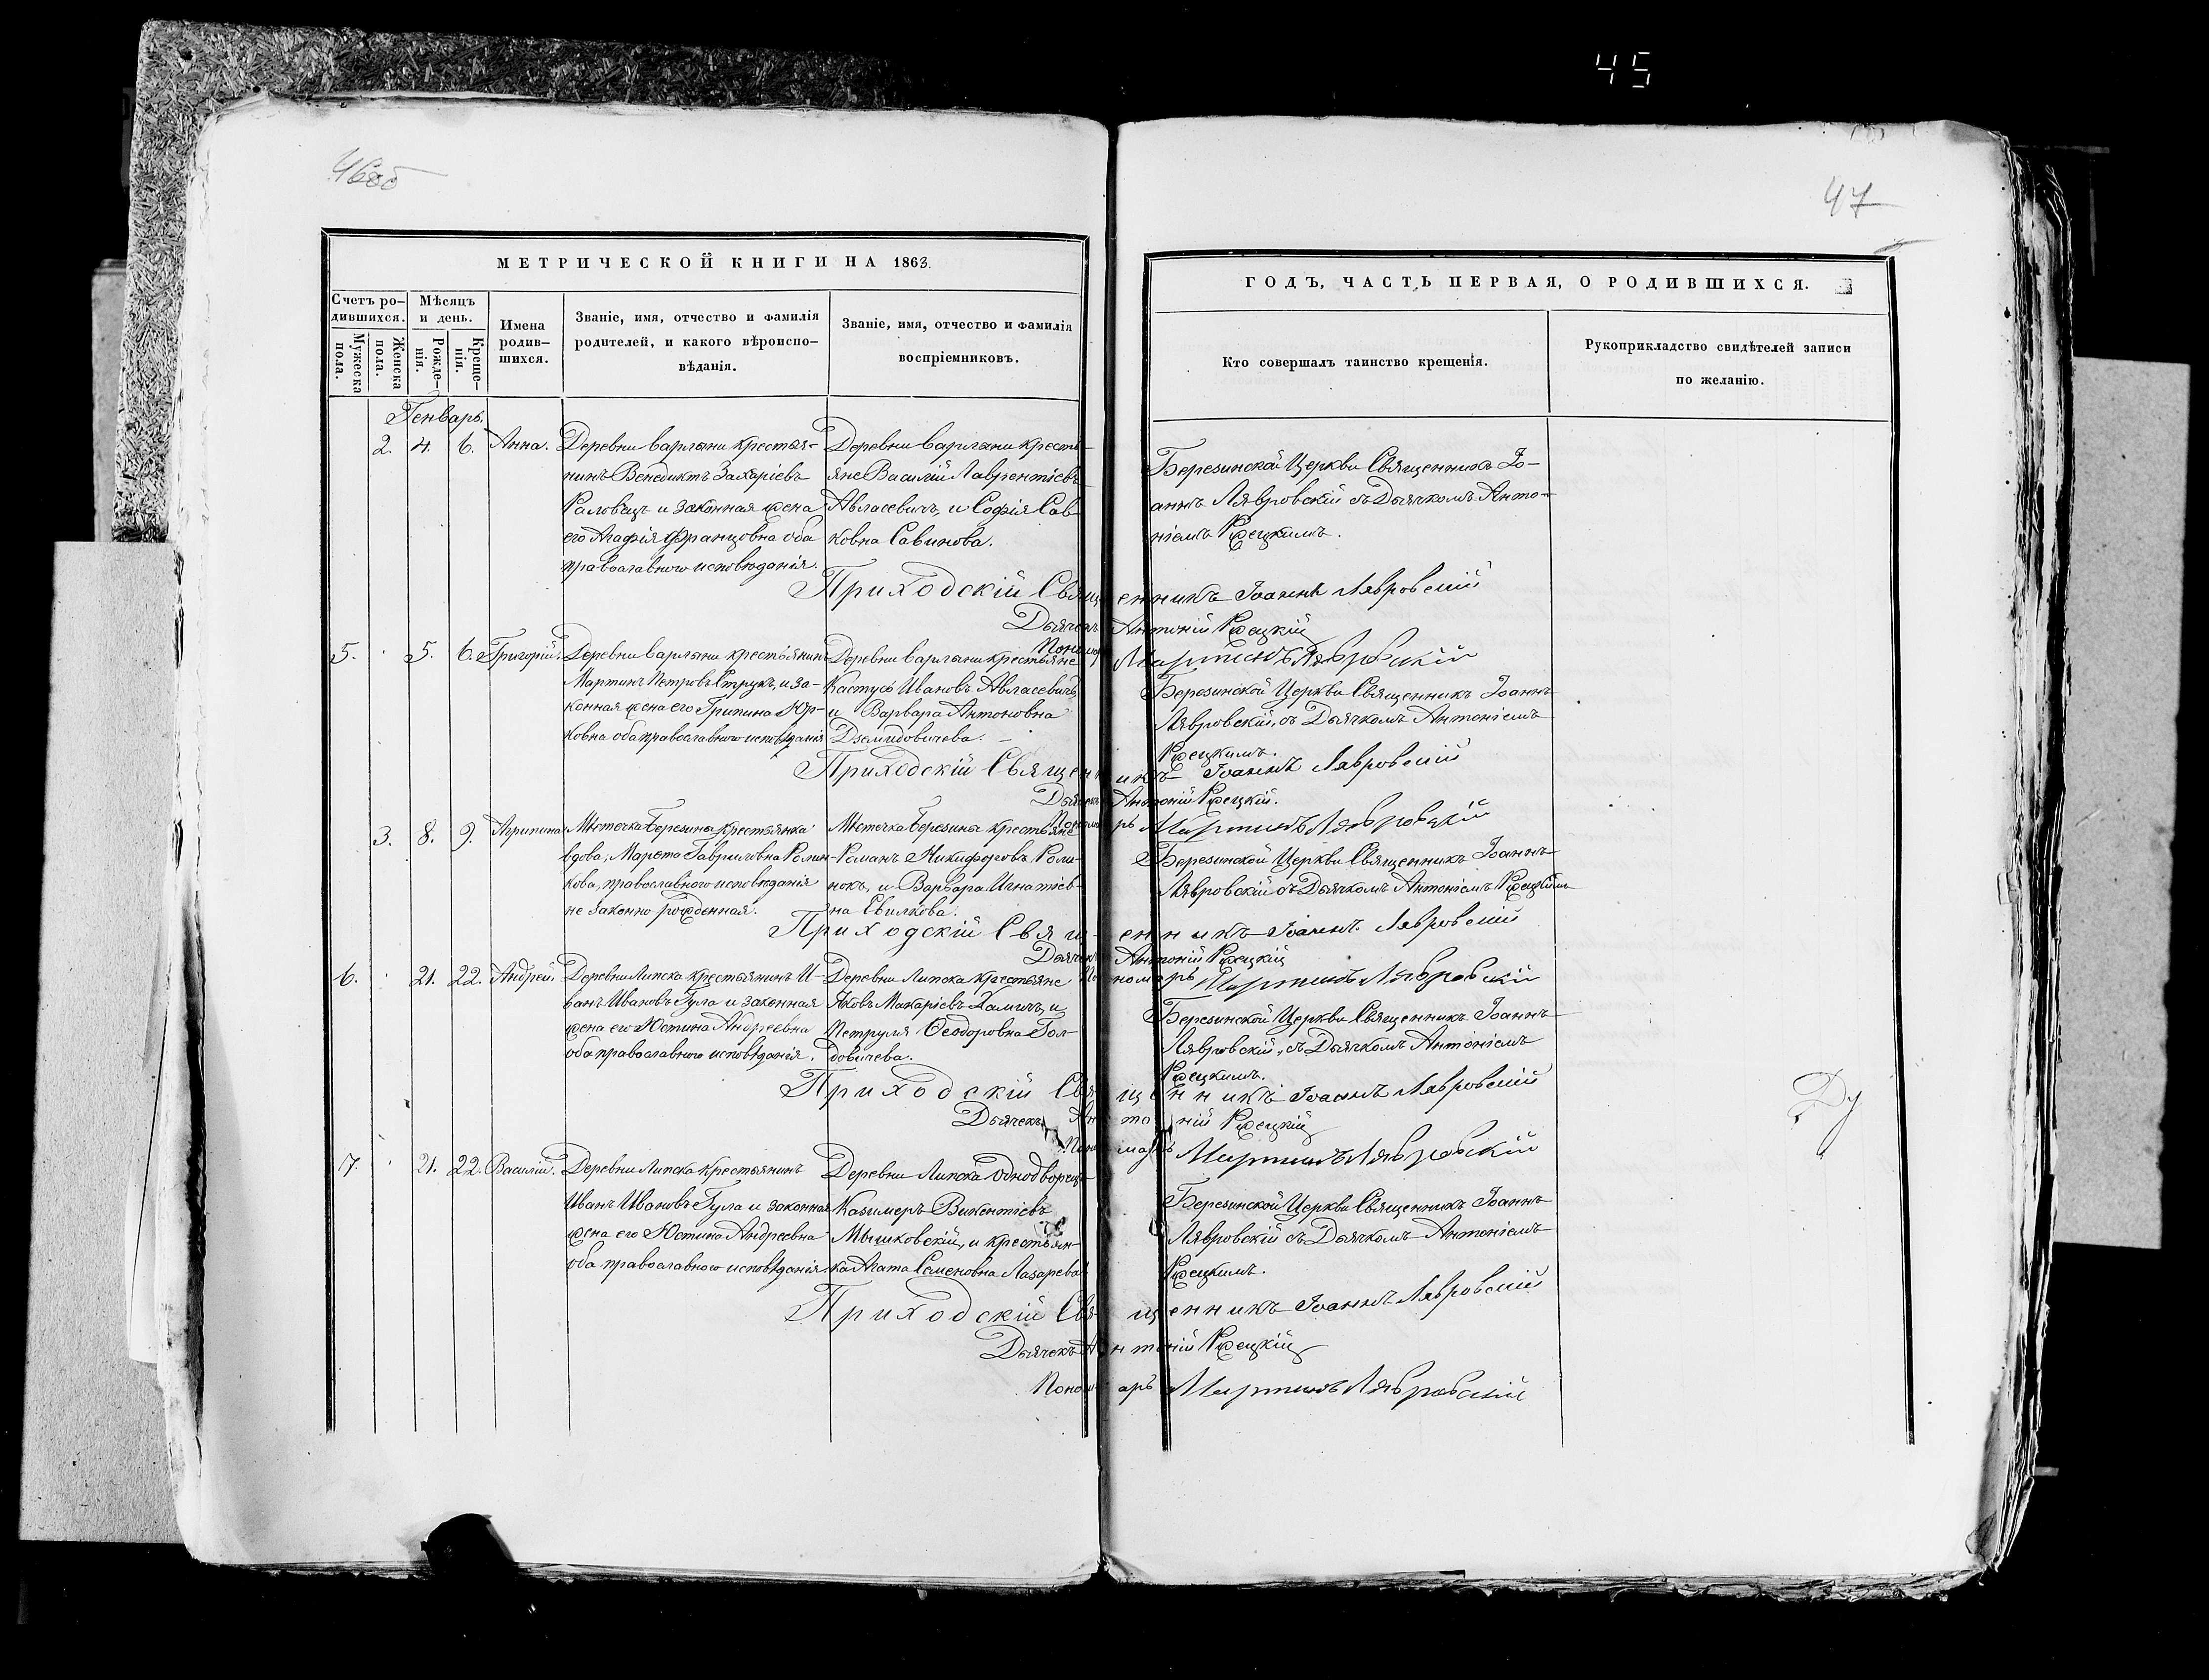 45
46об
47
МЕТРИЧЕСКОЙ КНИГИ НА 1863.
Счетъ ро-
дившихся.
Мужеска
пола.
Женска
пола.
Мѣсяцъ
и день.
Рожде-
нія.
Креще-
нія.
Имена
родив-
шихся.
Званіе, имя, отчество и фамилія
родителей, и какого вѣроиспо-
вѣданія.
Званіе, имя, отчество и фамилія
воспріемниковъ.
ГОДЪ, ЧАСТЬ ПЕРВАЯ, О РОДИВШИХСЯ.
Кто совершалъ таинство крещенія.
Рукоприкладство свидѣтелей записи
по желанію.
Генварь.
2. 4. 6. Анна.
Деревни Варланы крестья-
нинъ Венедиктъ Захаріевъ
и законная жена
его Агафія Францовна оба
православнаго исповѣданія.
Деревни Варланы кресть-
яне Василій Лаврентіевъ
Авласевичъ, и Софія Сав-
ковна Савинова.
Березинской Церкви Священникъ Іо-
аннъ Лявровскій съ Дьячкомъ Анто-
ніемъ Ржецкимъ.
Приходскій Священникъ Іоаннъ Лявровскій
Дьячекъ Антоній Ржецкій
Пономарь Мартинъ Лявровскій
5. 5. 6. Григорій.
Деревни Варланы крестьянинъ
Мартинъ Петровъ Струкъ, и за-
конная жена его Грипина Юр-
ковна оба православнаго исповѣданія
Деревни Варланы крестьяне
Кастусь Ивановъ Авласевичъ,
и Варвара Антоновна
Дземидовичева.
Березинской Церкви Священникъ Іоаннъ
Лявровскій, съ Дьячкомъ Антоніемъ
Ржецкимъ.
Приходскій Священникъ Іоаннъ Лявровскій
Дьячекъ Антоній Ржецкій.
Пономарь Мартинъ Лявровскій
3. 8. 9. Агрипина
Мѣстечка Березина крестьянка
вдова, Марета Гавриловна Ролин-
кова, православнаго исповѣданія
не законно рожденная.
Мѣстечка Березина крестьяне
Романъ Никифоровъ Роли-
нокъ, и Варвара Игнатіев-
на Свилкова.
Березинской Церкви Священникъ Іоаннъ
Лявровскій съ Дьячкомъ Антоніемъ Ржецкимъ
Приходскій Священникъ Іоаннъ Лявровскій
Дьячекъ Антоній Ржецкій
Пономарь Мартинъ Лявровскій
6. 21. 22. Андрей.
Деревни Липска крестьянинъ И-
ванъ Ивановъ Гула и законная
жена его Юстина Андреевна
оба православнаго исповѣданія.
Деревни Липска крестьяне
Яковъ Макаріевъ Хамичъ, и
Петруля Ѳеодоровна Гол-
довичева.
Березинской Церкви Священникъ Іоаннъ
Лявровскій, съ Дьячкомъ Антоніемъ
Ржецкимъ.
Приходскій Священникъ Іоаннъ Лявровскій
Дьячекъ Антоній Ржецкій
Пономарь Мартинъ Лявровскій
7. 21. 22. Василій.
Деревни Липска крестьянинъ
Иванъ Ивановъ Гула и законная
жена его Юстина Андреевна
оба православнаго исповѣданія
Деревни Липска Однодворецъ
Казимеръ Викентіевъ
Мышковскій, и крестьян-
ка Агата Семеновна Лазарева
Березинской Церкви Священникъ Іоаннъ
Лявровскій съ Дьячкомъ Антоніемъ
Ржецкимъ.
Приходскій Священникъ Іоаннъ Лявровскій
Дьячекъ Антоній Ржецкій
Пономарь Мартинъ Лявровскій